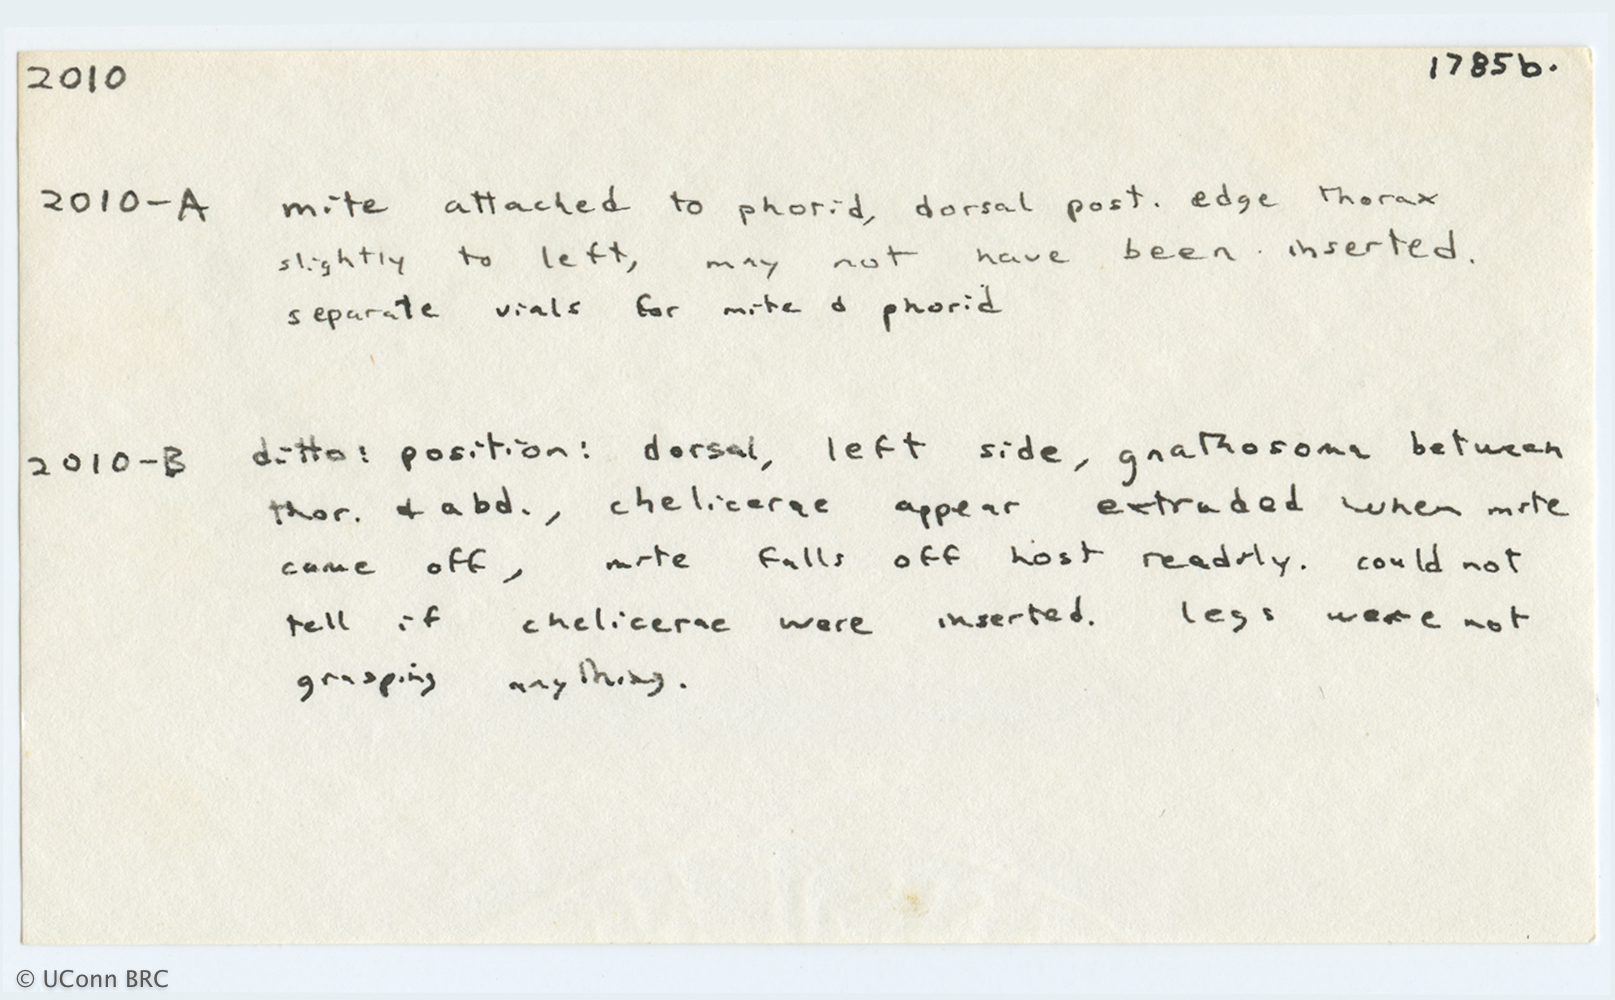 2010 1785b.
2010-A mite attached to phorid, dorsal post. edge thorax
slightly to left, may not have been inserted.
separate vials for mite & phorid
2010-B ditto: position: dorsal, left side, gnathosoma between
thor. & abd., chelicerae appear extruded when mite
came off, mite falls off host readily. could not
tell if chelicerae were inserted. legs were not
grasping anything.
© UConn BRC